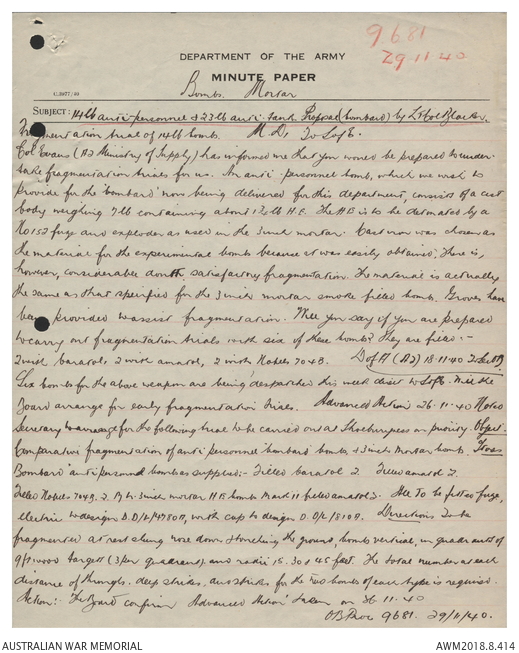 9681
29.11.40
DEPARTMENT OF THE ARMY
MINUTE PAPER
Bombs Mortar
C.3977/40
SUBJECT: 14 lb anti-personnel & 23 lb anti-tank Proposed (bombard) by Lt Col Blacker.
Fragmentation trial of 14 lb bomb. M.D. to
Col Evans (A2 Ministry of Supply) has informed me that you would be prepared to under-
take fragmentation trials for us. An anti personnel bomb, which we wish to
provide for the 'bombard' now being delivered for this department, consists of a cast
body weighing 7 lb containing about 1¾ lb H.E. The HE is to be detonated by a
No 152 fuze and exploder as used in the 3 inch mortar. Cast iron was chosen as
the material for the experimental bombs because it was easily obtained. There is,
however, considerable doubt satisfactory fragmentation. The material is actually
the same as that specified for the 3 inch mortar smoke filled bomb. Grooves have
been provided to assist fragmentation. Will you say if you are prepared
to carry out fragmentation trials with six of these bombs? They are filled :-
2 with baratol, 2 with amatol, 2 with Nobels 704B. 18.11.40
Six bombs for the above weapon are being despatched this week direct to Will the
Board arrange for early fragmentation trials. Advanced Action 26.11.40 Notes
Secretary to arrange for the following trial to be carried out at Shoeburyness on priority Object:-
Comparative fragmentation of anti personnel bombard bomb & 3 inch mortar bomb
Bombard anti personnel bomb as supplied :- Filled baratol 2. Filled amatol 2.
Filled Nobels 704B. 2. 3 inch mortar HE bomb Mark II filled amatol 2. All to be fitted fuze,
electric to design D.D/L/4780A, with cap to design D.D/L/8109A. Directions To be
fragmented at rest standing nose down & touching the ground, bombs vertical, in quadrants of
wood targets (3 per quadrant), and radii 15. 30 & 45 feet. The total number at each
distance of throughs, deep strikes, and strikes for the two bombs of each type is required.
Action: The Board confirm 'Advanced Action' taken on 26.11.40
OB Proc 9681. 29/11/40.
AUSTRALIAN WAR MEMORIAL
AWM2018.8.414